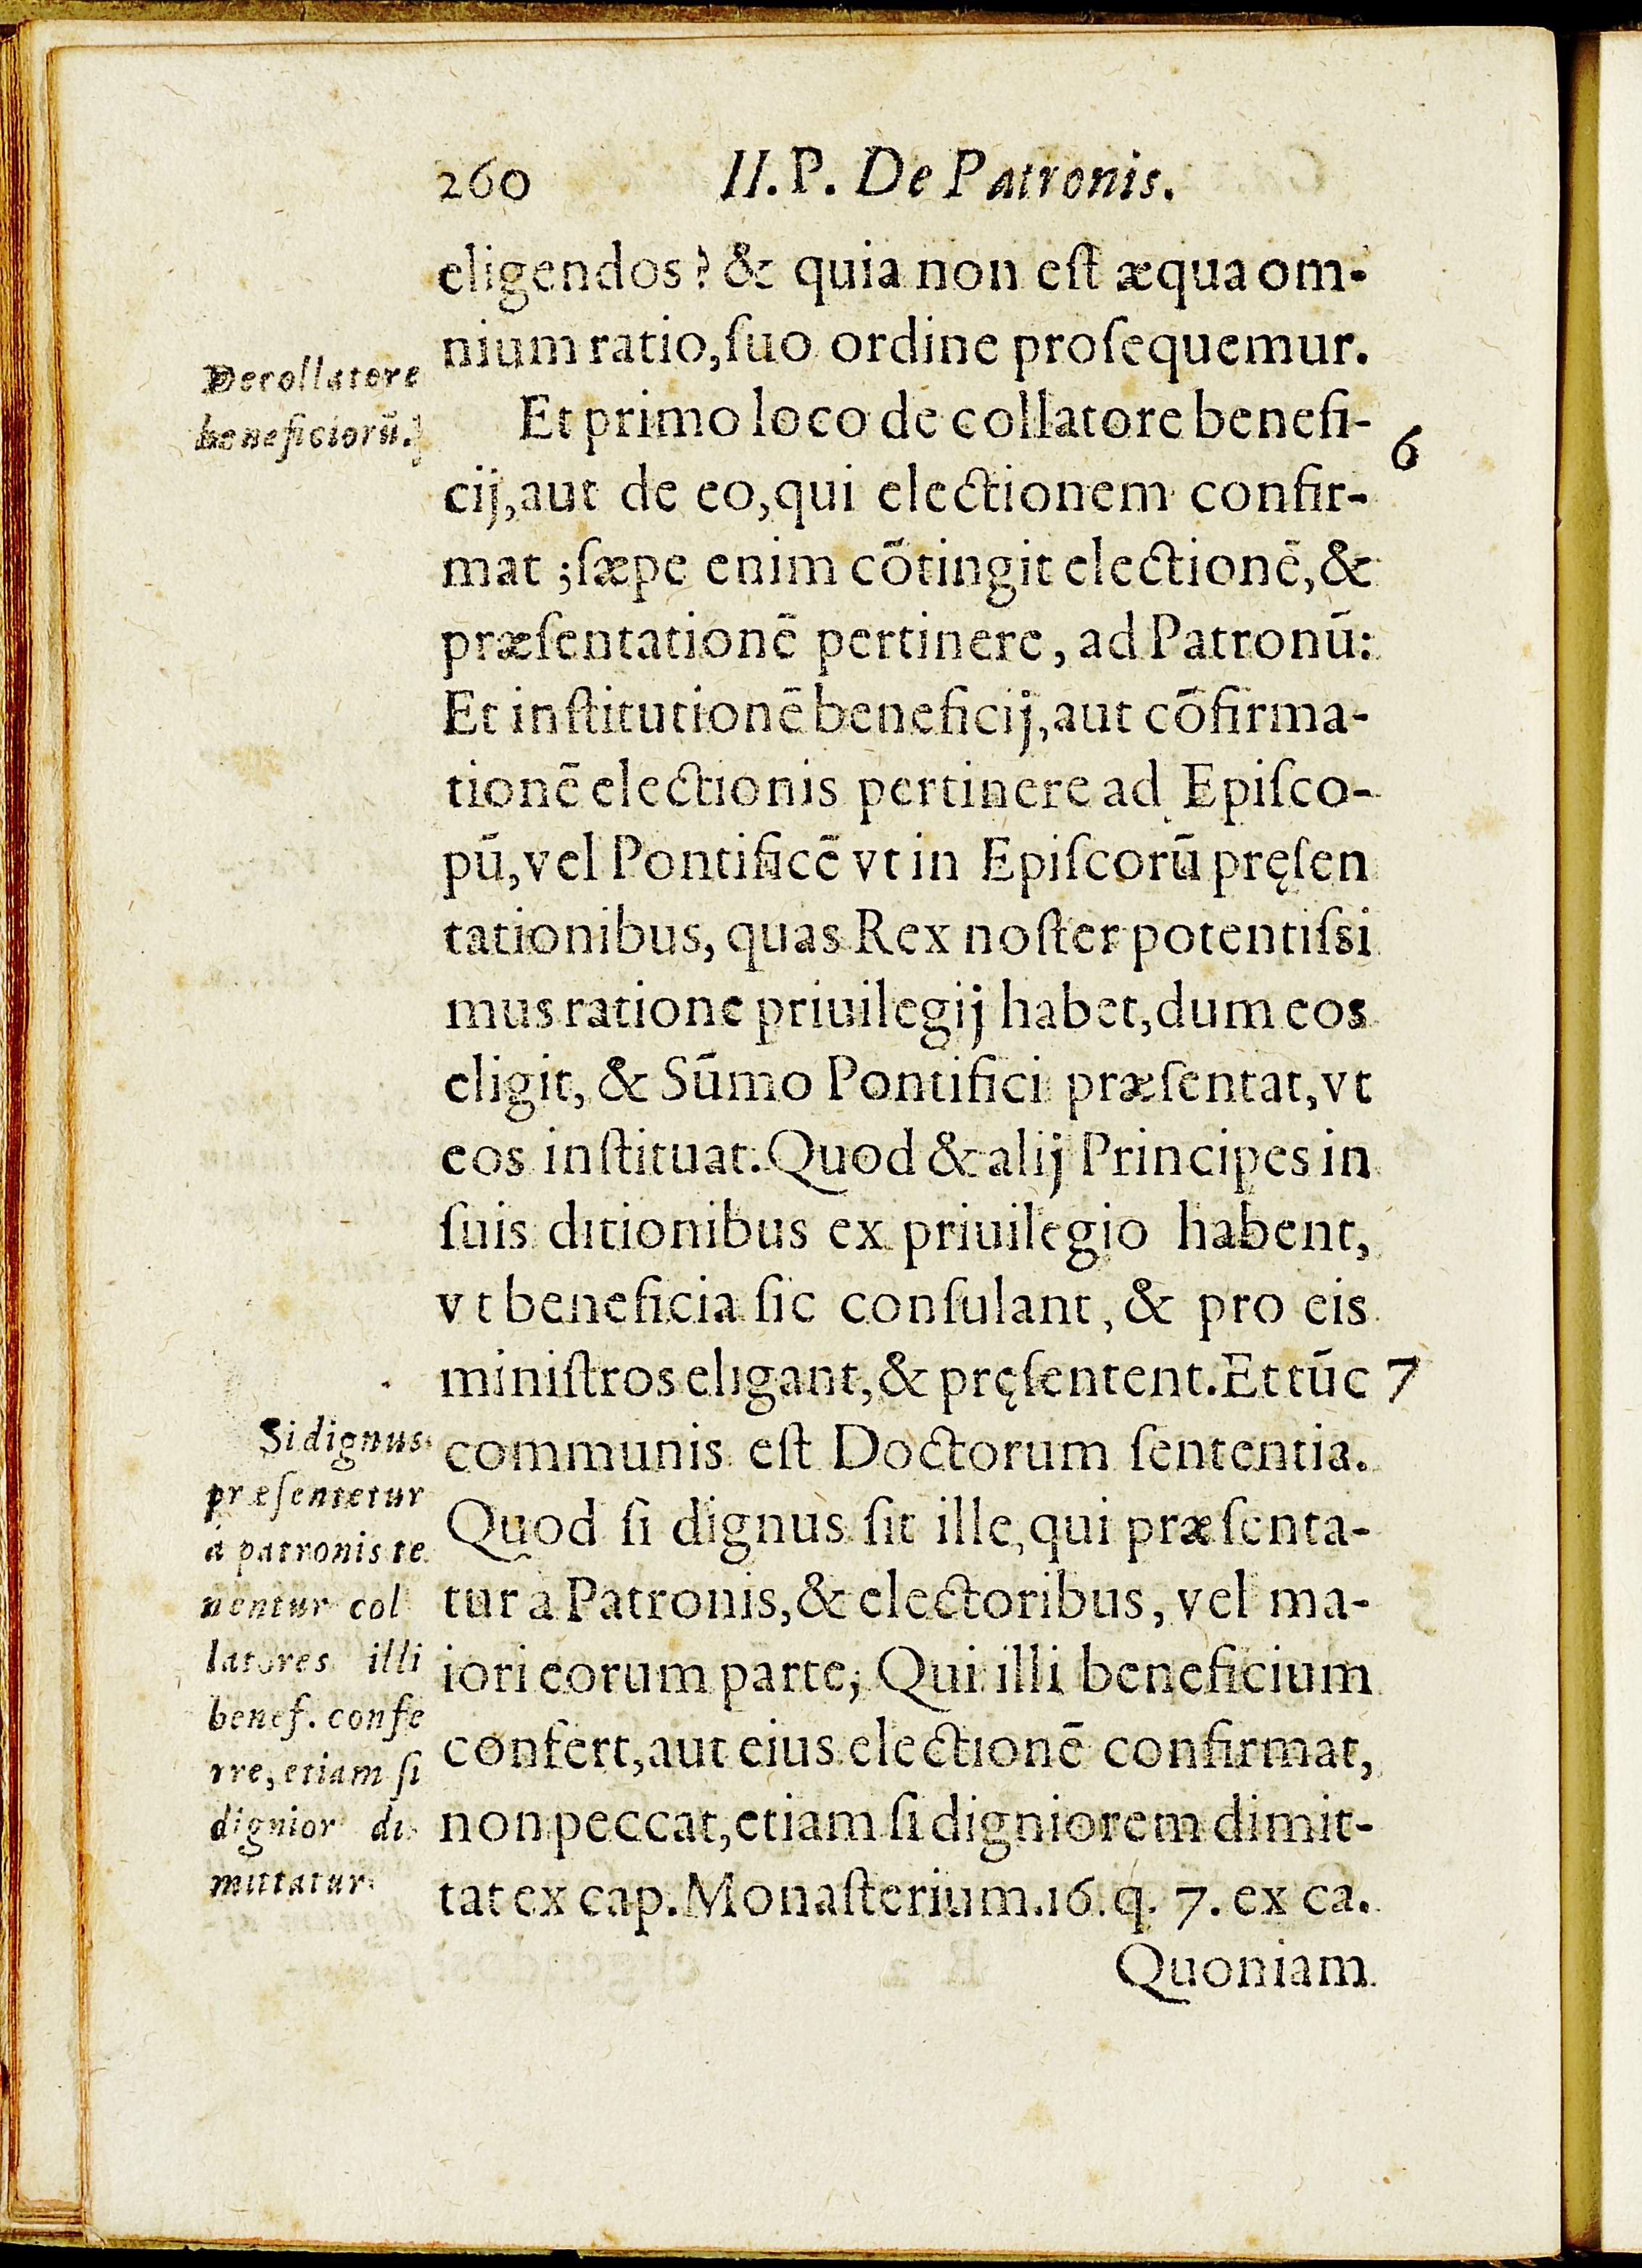 260 II. P. De Patronis.
eligendos? & quia non eſt æqua om-
nium ratio, ſuo ordine proſequemur.
De collatore
beneficiorũ.
Et primo loco de collatore benefi- 6
cij, aut de eo, qui electionem confir-
mat; ſæpe enim cõtingit electionẽ, &
præſentationẽ pertinere, ad Patronũ:
Et inſtitutionẽ beneficij, aut cõfirma-
tionẽ electionis pertinere ad Epiſco-
pũ, vel Pontificẽ vt in Epiſcorũ pręſen
tationibus, quas Rex noſter potentiſsi
mus ratione priuilegij habet, dum eos
eligit, & Sũmo Pontifici præſentat, vt
eos inſtituat. Quod & alij Principes in
ſuis ditionibus ex priuilegio habent,
vt beneficia ſic conſulant, & pro eis
miniſtros eligant, & pręſentent. Et tũc 7
communis eſt Doctorum ſententia.
Quod ſi dignus ſit ille, qui præſenta-
tur à Patronis, & electoribus, vel ma-
iori eorum parte; Qui illi beneficium
confert, aut eius electionẽ confirmat,
non peccat, etiam ſi digniorem dimit-
tat ex cap. Monaſterium. 16. q. 7. ex ca.
Si dignus
præſentetur
à patronis te
nentur col
latores illi
benef. confe
rre, etiam ſi
dignior di
mittatur
Quoniam